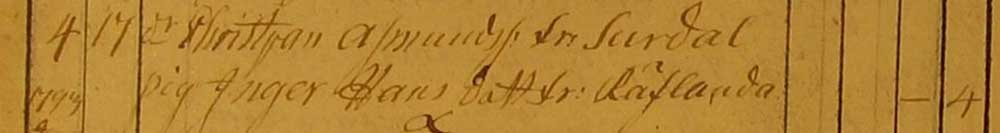 4 17 dr Christian Asmundss: fr: Surdal
1793 pig Inger Hans dott fr: Räflanda — 4